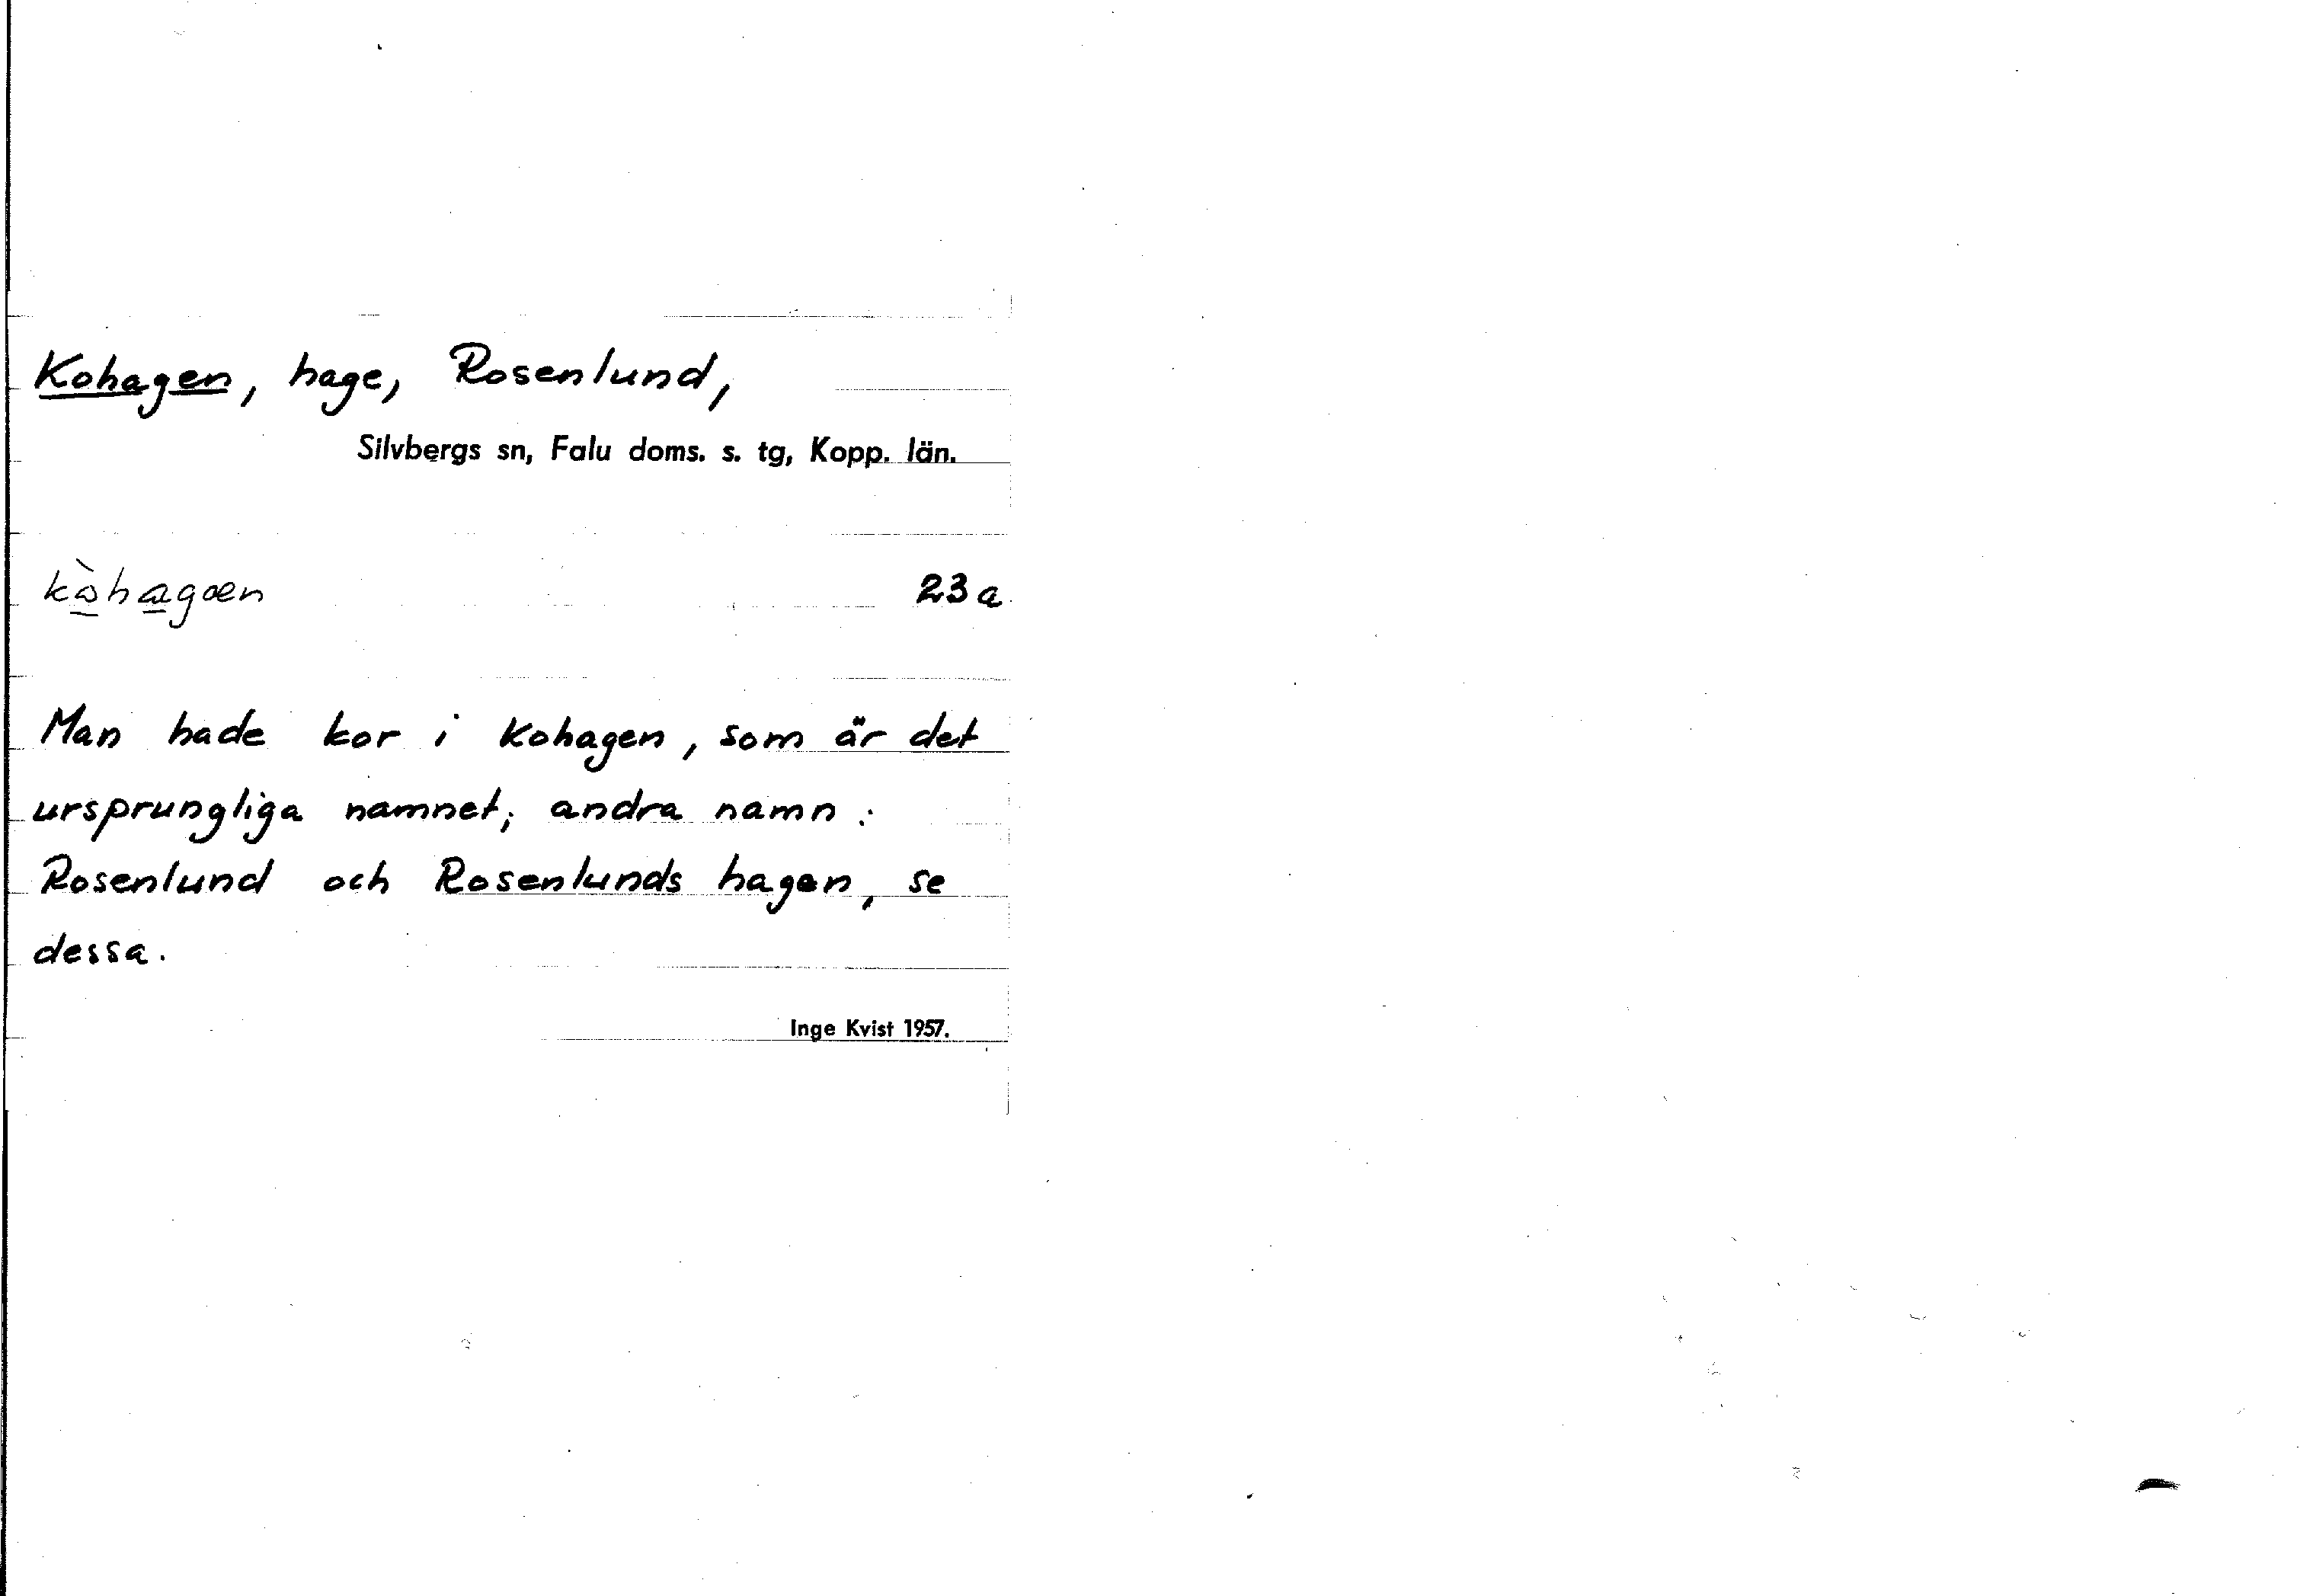 Kohagen, hage, Rosenlund,
Silvbergs sn, Falu doms. s. tg, Kopp. län.
kòhagæn 23a
Man hade kor i Kohagen, som är det
ursprungliga namnet; andra namn:
Rosenlund och Rosenlunds hagen, se
dessa.
Inge Kvist 1957.